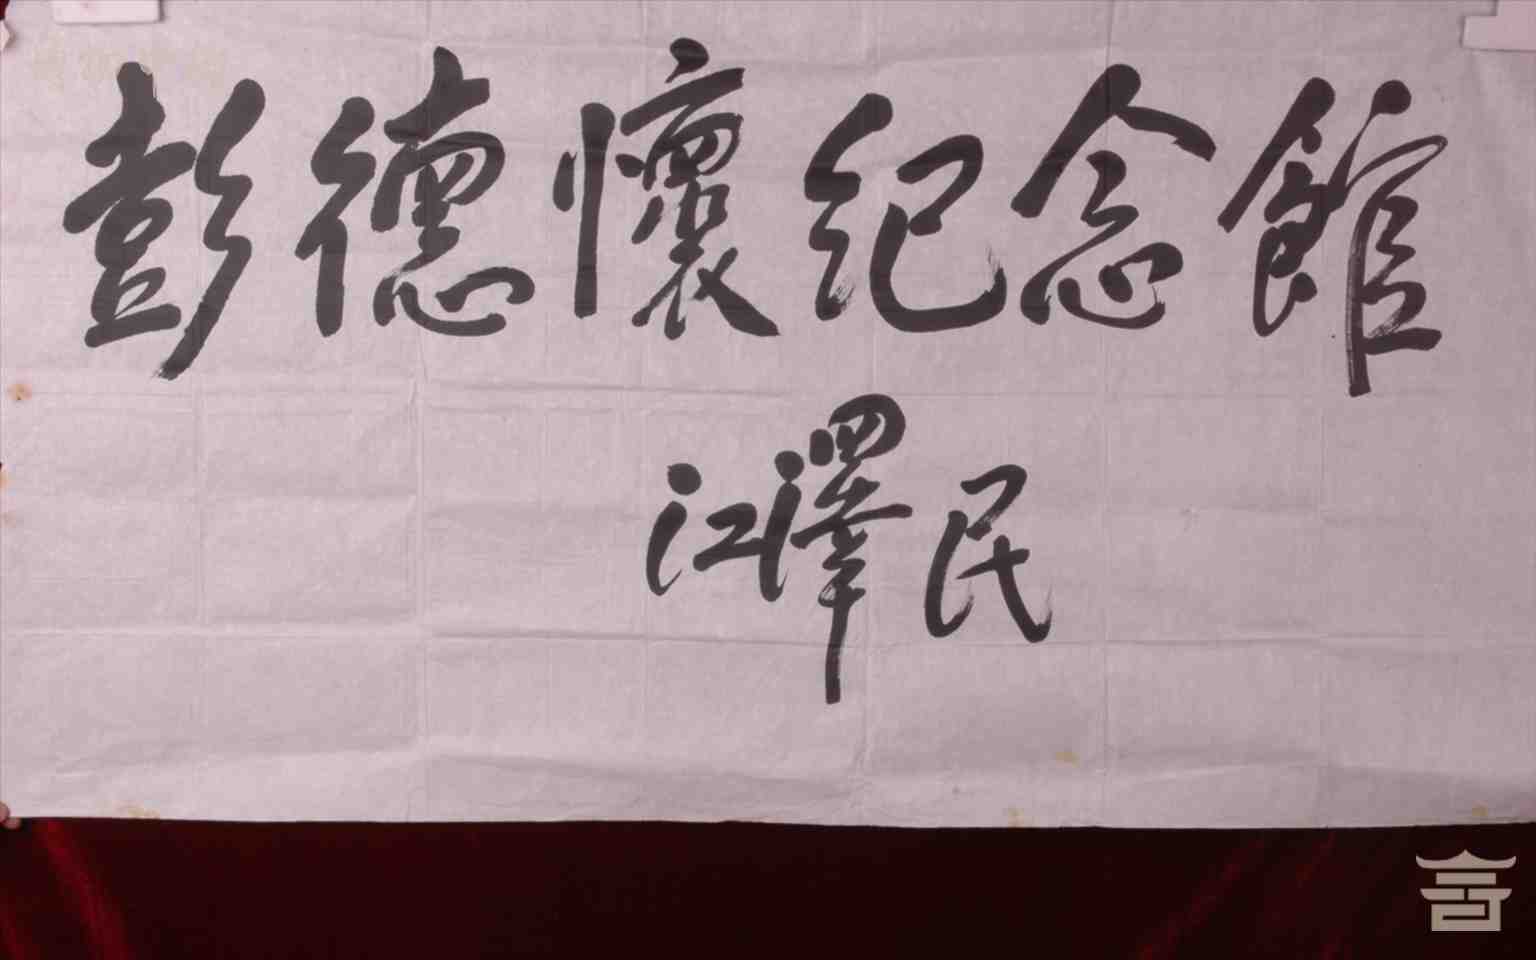 彭德懷纪念館
江澤民